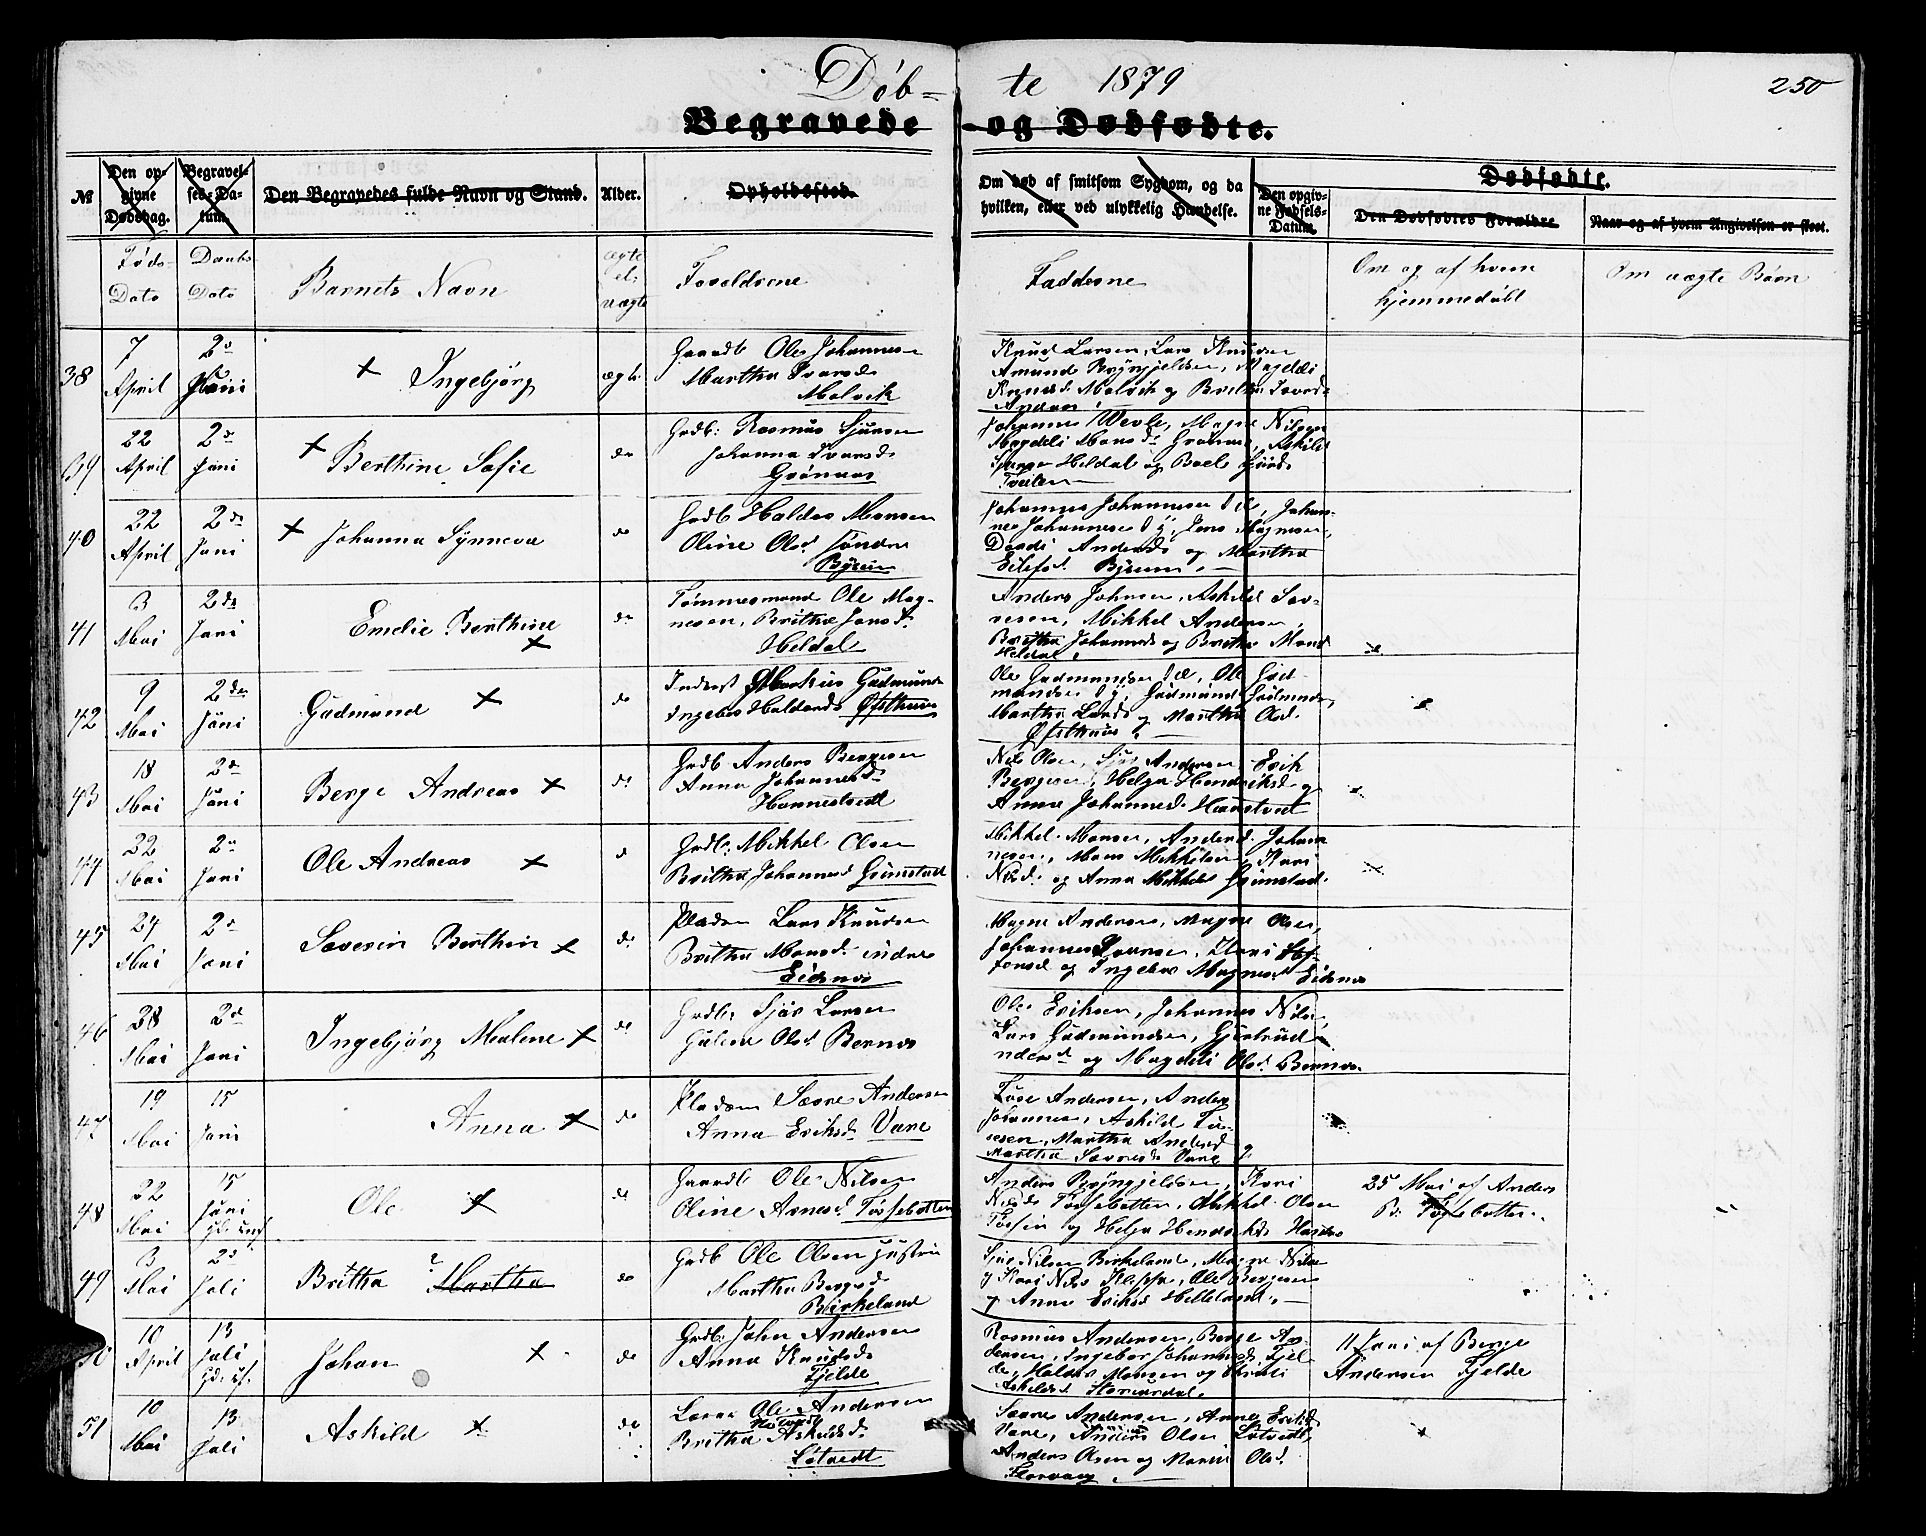 Døb- te 1879
250
Begravede og Dødfødte.
№
Den opgivne Dødsdag.
Begravelses-Datum.
Den Begravedes fulde Navn og Stand.
Alder.
Opholdssted.
Om død af smitsom Sygdom, og da hvilken, eller ved ulykkelig Hændelse.
Dødfødte.
Den opgivne Fødsels-Datum.
Den Dødfødtes Forældre
Naar og af hvem Angivelsen er skeet.
Føds-
Dato
Daabs
Dato
Barnets Navn
ægte
el.
uægte
Forældrene
Fadderne
Om og af hvem
hjemmedøbt
Om uægte Børn
38
7
April
2
Juni
Ingebjørg
ægte
Gaardb Ole Johannesen
Martha Ivarsd.
Malvik
Knud Larsen, Lars Knudsen
Amund Brynjeldsen, Magdeli
Malvik og Britha
39
22
April
2
Juni
Berthine Sofie
do
Grdb: Rasmus Sjursen
Johanna Ivarsd.
Grønaas
Johannes Wevle, Magne Nilsen
Magdeli Monsd. Askild
Heldal og Boel
40
22
April
2
Juni
Johanna Synneva
do
Grdb Haldor Monsen
Oline Olsd. søndre
Johannes Johannesen d. æ, Johan-
nes Johannesen d. y, Jens Magnesen,
Andersd. og Martha
41
3
Mai
2
Juni
Emelie Berthine
do
Tømmesmand Ole Mag-
nesen, Britha Jonsd.
Heldal
Anders Johnsen, Askild Sæv-
resen, Mikkel Andersen,
Britha Johannesd. og Britha Monsd
Heldal
42
9
Mai
2
Juni
Gudmund
do
Inderst Markus Gudmunds
Ingebor Haldorsd. Østhus
Ole Gudmundsen d. æ, Ole Gud-
mundsen d. y, Gudmund Gudmunds,
Martha Larsd. og Martha Olsd.
Østhus
43
18
Mai
2
Juni
Berge Andreas
do
Grdb Anders Bergesen
Anna Johannesd.
Hannestvedt
Nils Olsen, Sjur Andersen, Erik
Bergesen, Helga Hendriksd. og
Anna Johannesd. Hanstvet
44
22
Mai
2
Juni
Ole Andreas
d
Grdb: Mikkel Olsen
Britha Johannesd. Grimstad
Mikkel Monsen, Anders Johan-
nesen, Mons Mikkelsen, Kari
Nilsd. og Anna Mikkelsd. Grimstad.
45
24
Mai
2
Juni
Severin Berthin
do
Pladsm Lars Knudsen
Britha Monsd. indre
Eidsnes
Magne Andersen, Magne Olsen,
Johannes Kari
og Ingebor Magnesd. Eidsnes
46
28
Mai
2
Juni
Ingebjørg Malene
do
Grdb: Sjur Larsen
Guline Olsd. Bernes
Ole Eriksen, Johannes Nilsen,
Lars Gudmundsen, Gjertrud
og Magdeli Olsd. Bernes
47
19
Mai
15
Juni
Anna
do
Pladsm Sævre Andersen
Anna Eriksd. Vane
Andersen, Anders
Johannesen, Askild
Martha Andersd. og
Martha Sævresd. Vane
48
22
Mai
15
Juni
Ole
do
Gaardb Ole Nilsen
Oline Arnesd. Tøssebotten
Anders Brynjeldsen, Kari
Nilsd. Tøssebotten, Mikkel Olsen
og Helga
25 Mai af Anders
B. Tøssebotten
49
3
Mai
2
Juli
Britha Martha
do
Grdb Ole Olsen
Martha Bergesd.
Birkeland
Nilsen Birkeland, Magne Nilsen
og Kari Nilsd. Ole Bergesen
og Anna Eriksd. Helleland.
50
10
April
13
Juli
Johan
do
Grdb: John Andersen
Anna Knudsd.
Fjelde
Rasmus Andersen, Berge An-
dersen, Ingebor Johannesd. Fjel-
de, Haldor Monsen og
Askildsd.
11 Juni af Berge
Andersen Fjelde
51
10
Mai
13
Juli
Askild
do
Ole Andersen
Britha Askildsd.
Løtvedt
Sævre Andersen, Anna Eriksd
Vane, Anders Olsen Løtvedt,
Anders Olsen og Olsd.